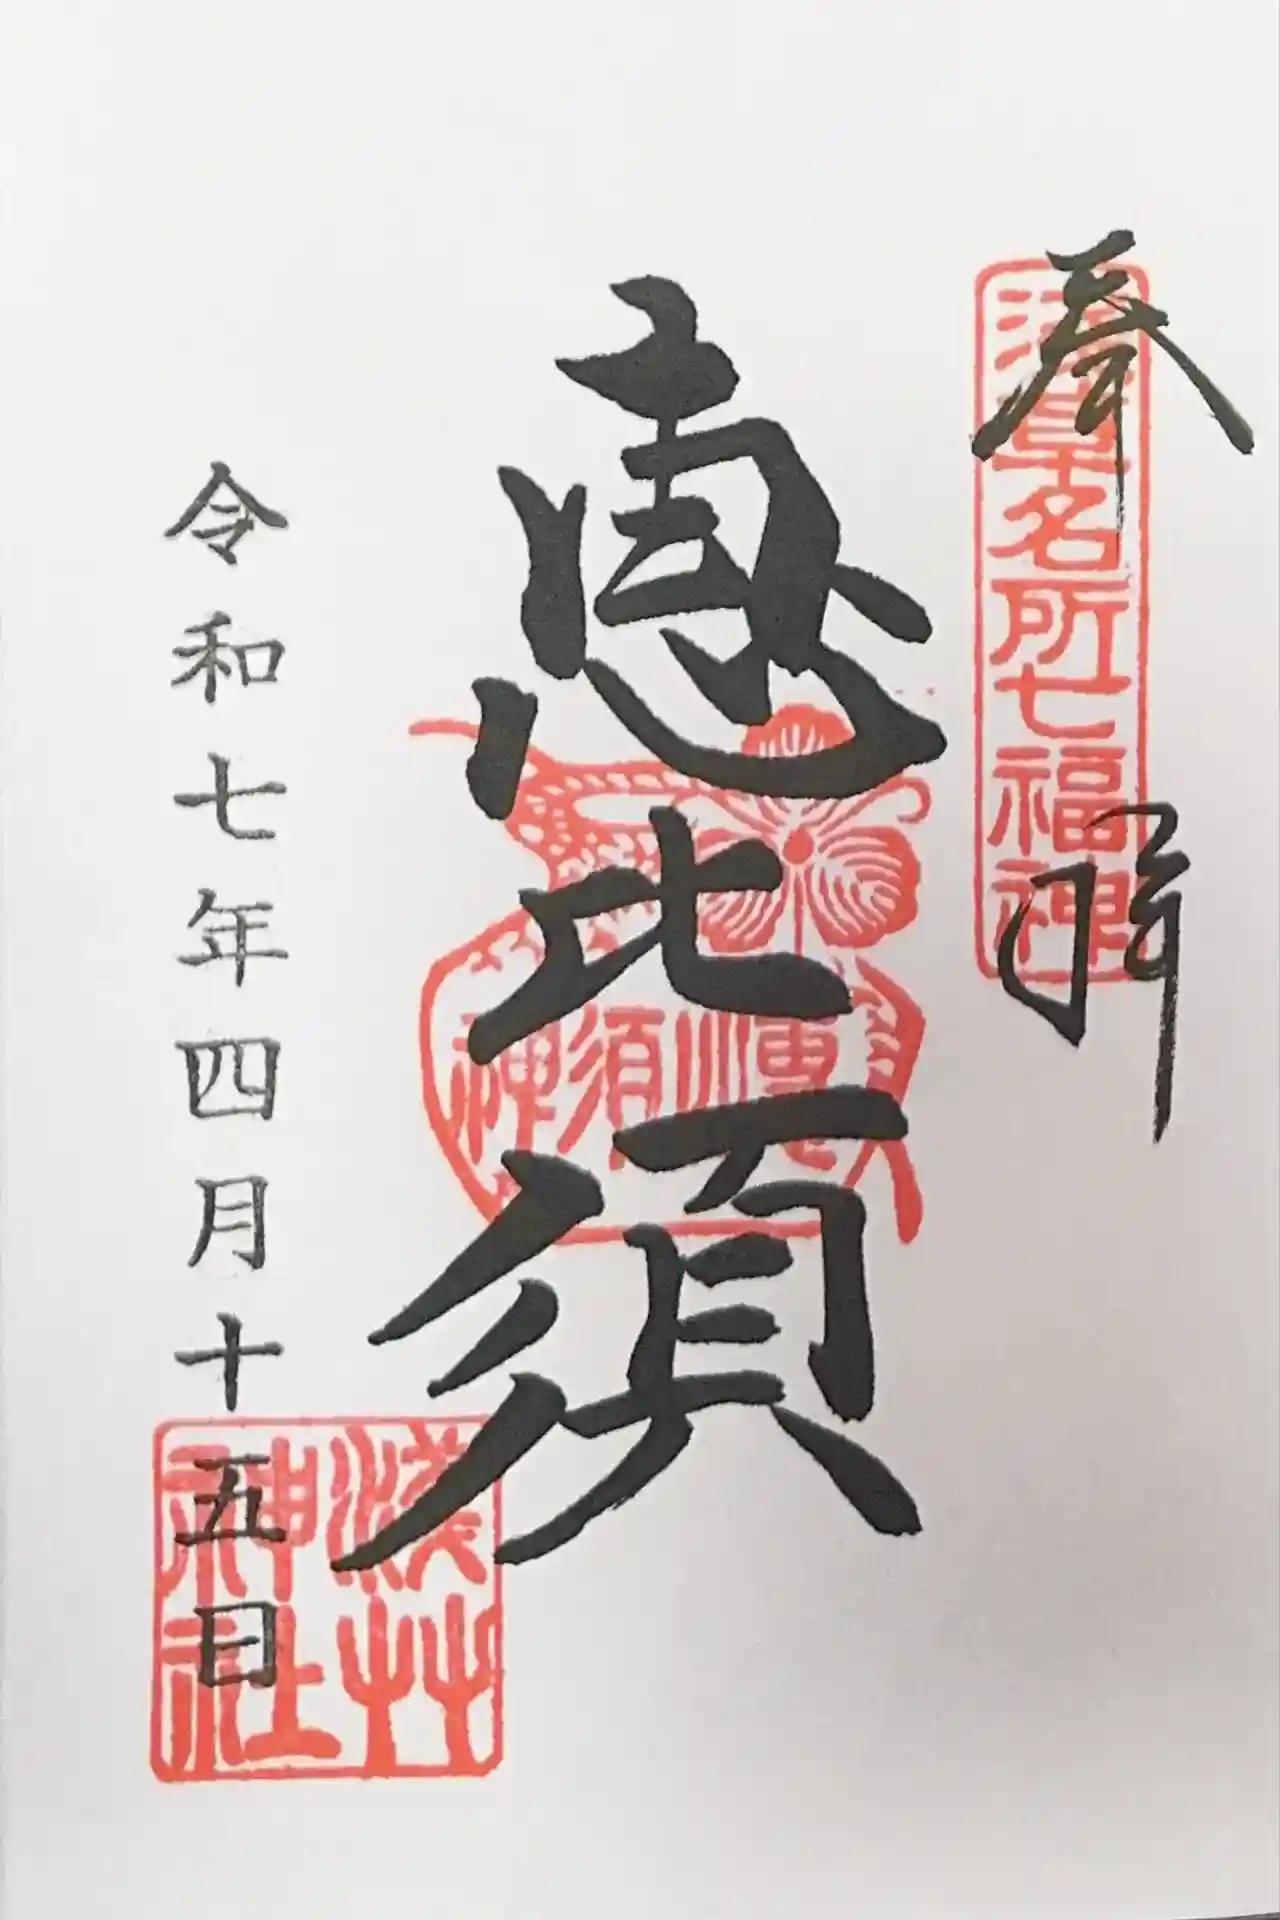 奉拝
浅草名所七福神
恵比須
恵比須神
令和七年四月十五日
浅草神社